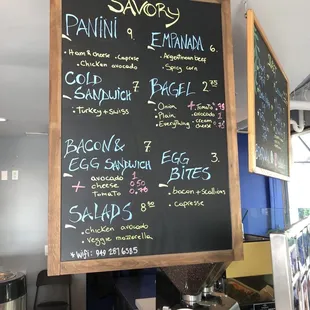 SAVORY
PANINI 9
• Ham & cheese • Caprese
• Chicken avocado
EMPANADA 6.
• Argentinean beef
• Spicy corn
COLD
SANDWICH 7
• Turkey + Swiss
BAGEL 2.75
• Onion
• Plain
• Everything
+ Tomato .75
avocado 1
• Cream cheese .75
BACON &
EGG SANDWICH 7
+ avocado 1
cheese 0.50
Tomato 0.75
EGG
BITES 3.
• bacon + Scallions
• capresse
SALADS 8.50
• chicken avocado
• veggie mozzarella
* Wifi: 949 287 6585